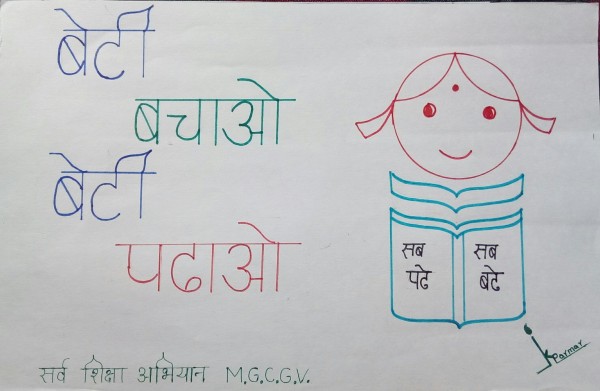 बेटी
बचाओ
बेटी
पढाओ
सब
पढे
सब
बढे
Parmar
सर्व शिक्षा अभियान M.G.C.G.V.